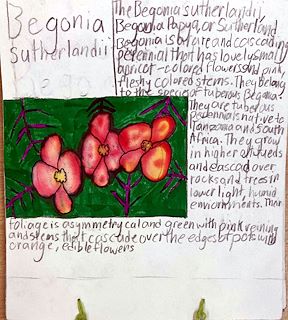 Begonia
sutherlandii
The Begonia sutherlandii,
Begonia Papaya, or Sutherland
Begonia is a rare and cascading
perennial that has lovely small
apricot-colored flowers and pink,
fleshy colored stems. They belong
to the species of tuberous Begonia.
They are tuberous
perennials native to
Tanzania and South
Africa. They grow
in higher altitudes
and cascade over
rocks and trees in
lower light, humid
environments. Their
foliage is asymmetrycal and green with pink veining
and stems that cascade over the edges of pots with
orange, edible flowers